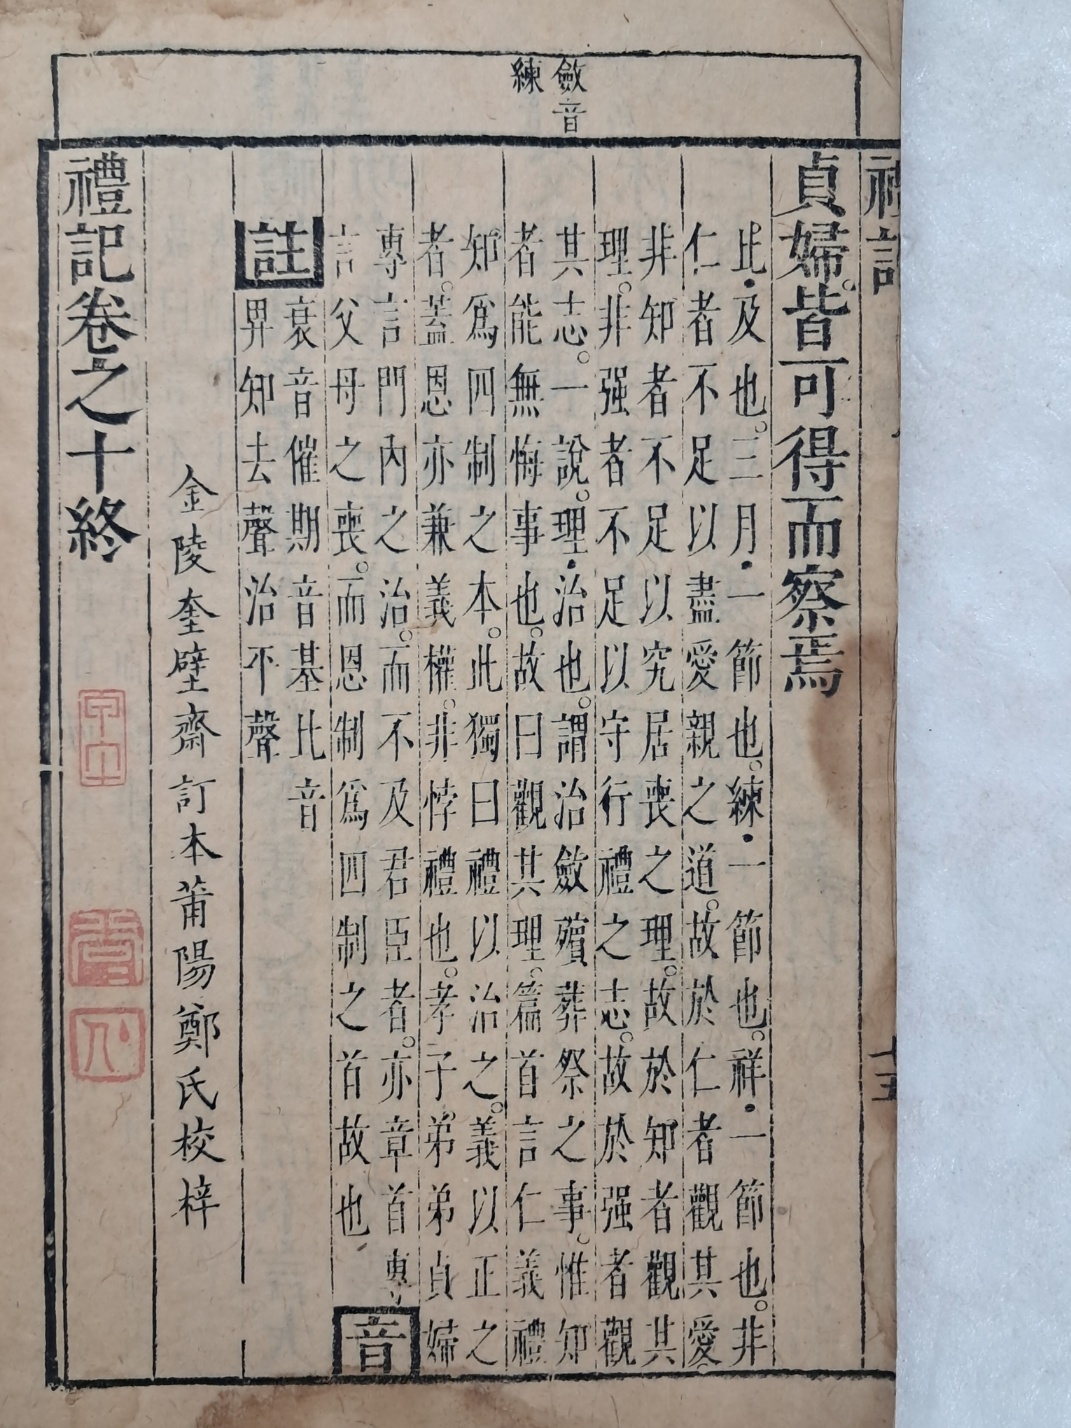 斂音
練
禮記
十五
貞婦。皆可得而察焉
比・及也。三月・一節也。練・一節也。祥・一節也。非
仁者不足以盡愛親之道。故於仁者觀其愛
非知者不足以究居喪之理。故於知者觀其
理。非强者不足以守行禮之志。故於强者觀
其志。一說。理・治也。謂治斂殯葬祭之事。惟知
者能無悔事也。故曰觀其理。篇首言仁義禮
知爲四制之本。此獨曰禮以治之。義以正之
者。蓋恩亦兼義權。非悖禮也。孝子。弟弟貞婦
專言門內之治。而不及君臣者。亦章首專
言父母之喪。而恩制爲四制之首故也
音
註
衰音催期音基比音
畀知去聲治平聲
金陵奎壁齋訂本莆陽鄭氏校梓
禮記卷之十終